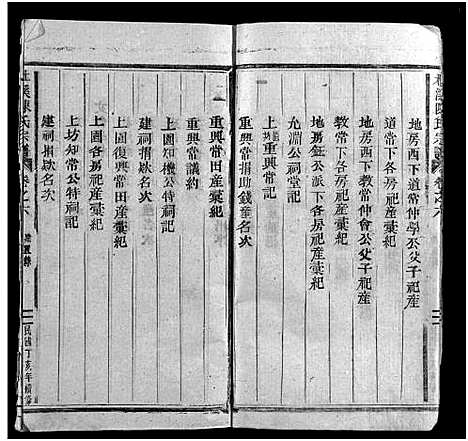 地房西下道常仲學公父子祀產
道常下各房祀產彙紀
地房西下教常仲會公父子祀產
教常下各房祀產彙紀
地房鈺公派下各房祀產彙紀
允淵公祠堂記
上園重興常記
重興常捐助錢穀名次
重興常田產彙紀
重興常議約
上園知機公特祠記
建祠捐欵名次
上園復興常田產彙紀
上園各房祀產彙紀
上坊知常公特祠記
建祠捐欵名次
陳氏宗譜
卷之六
民國丁亥年續修